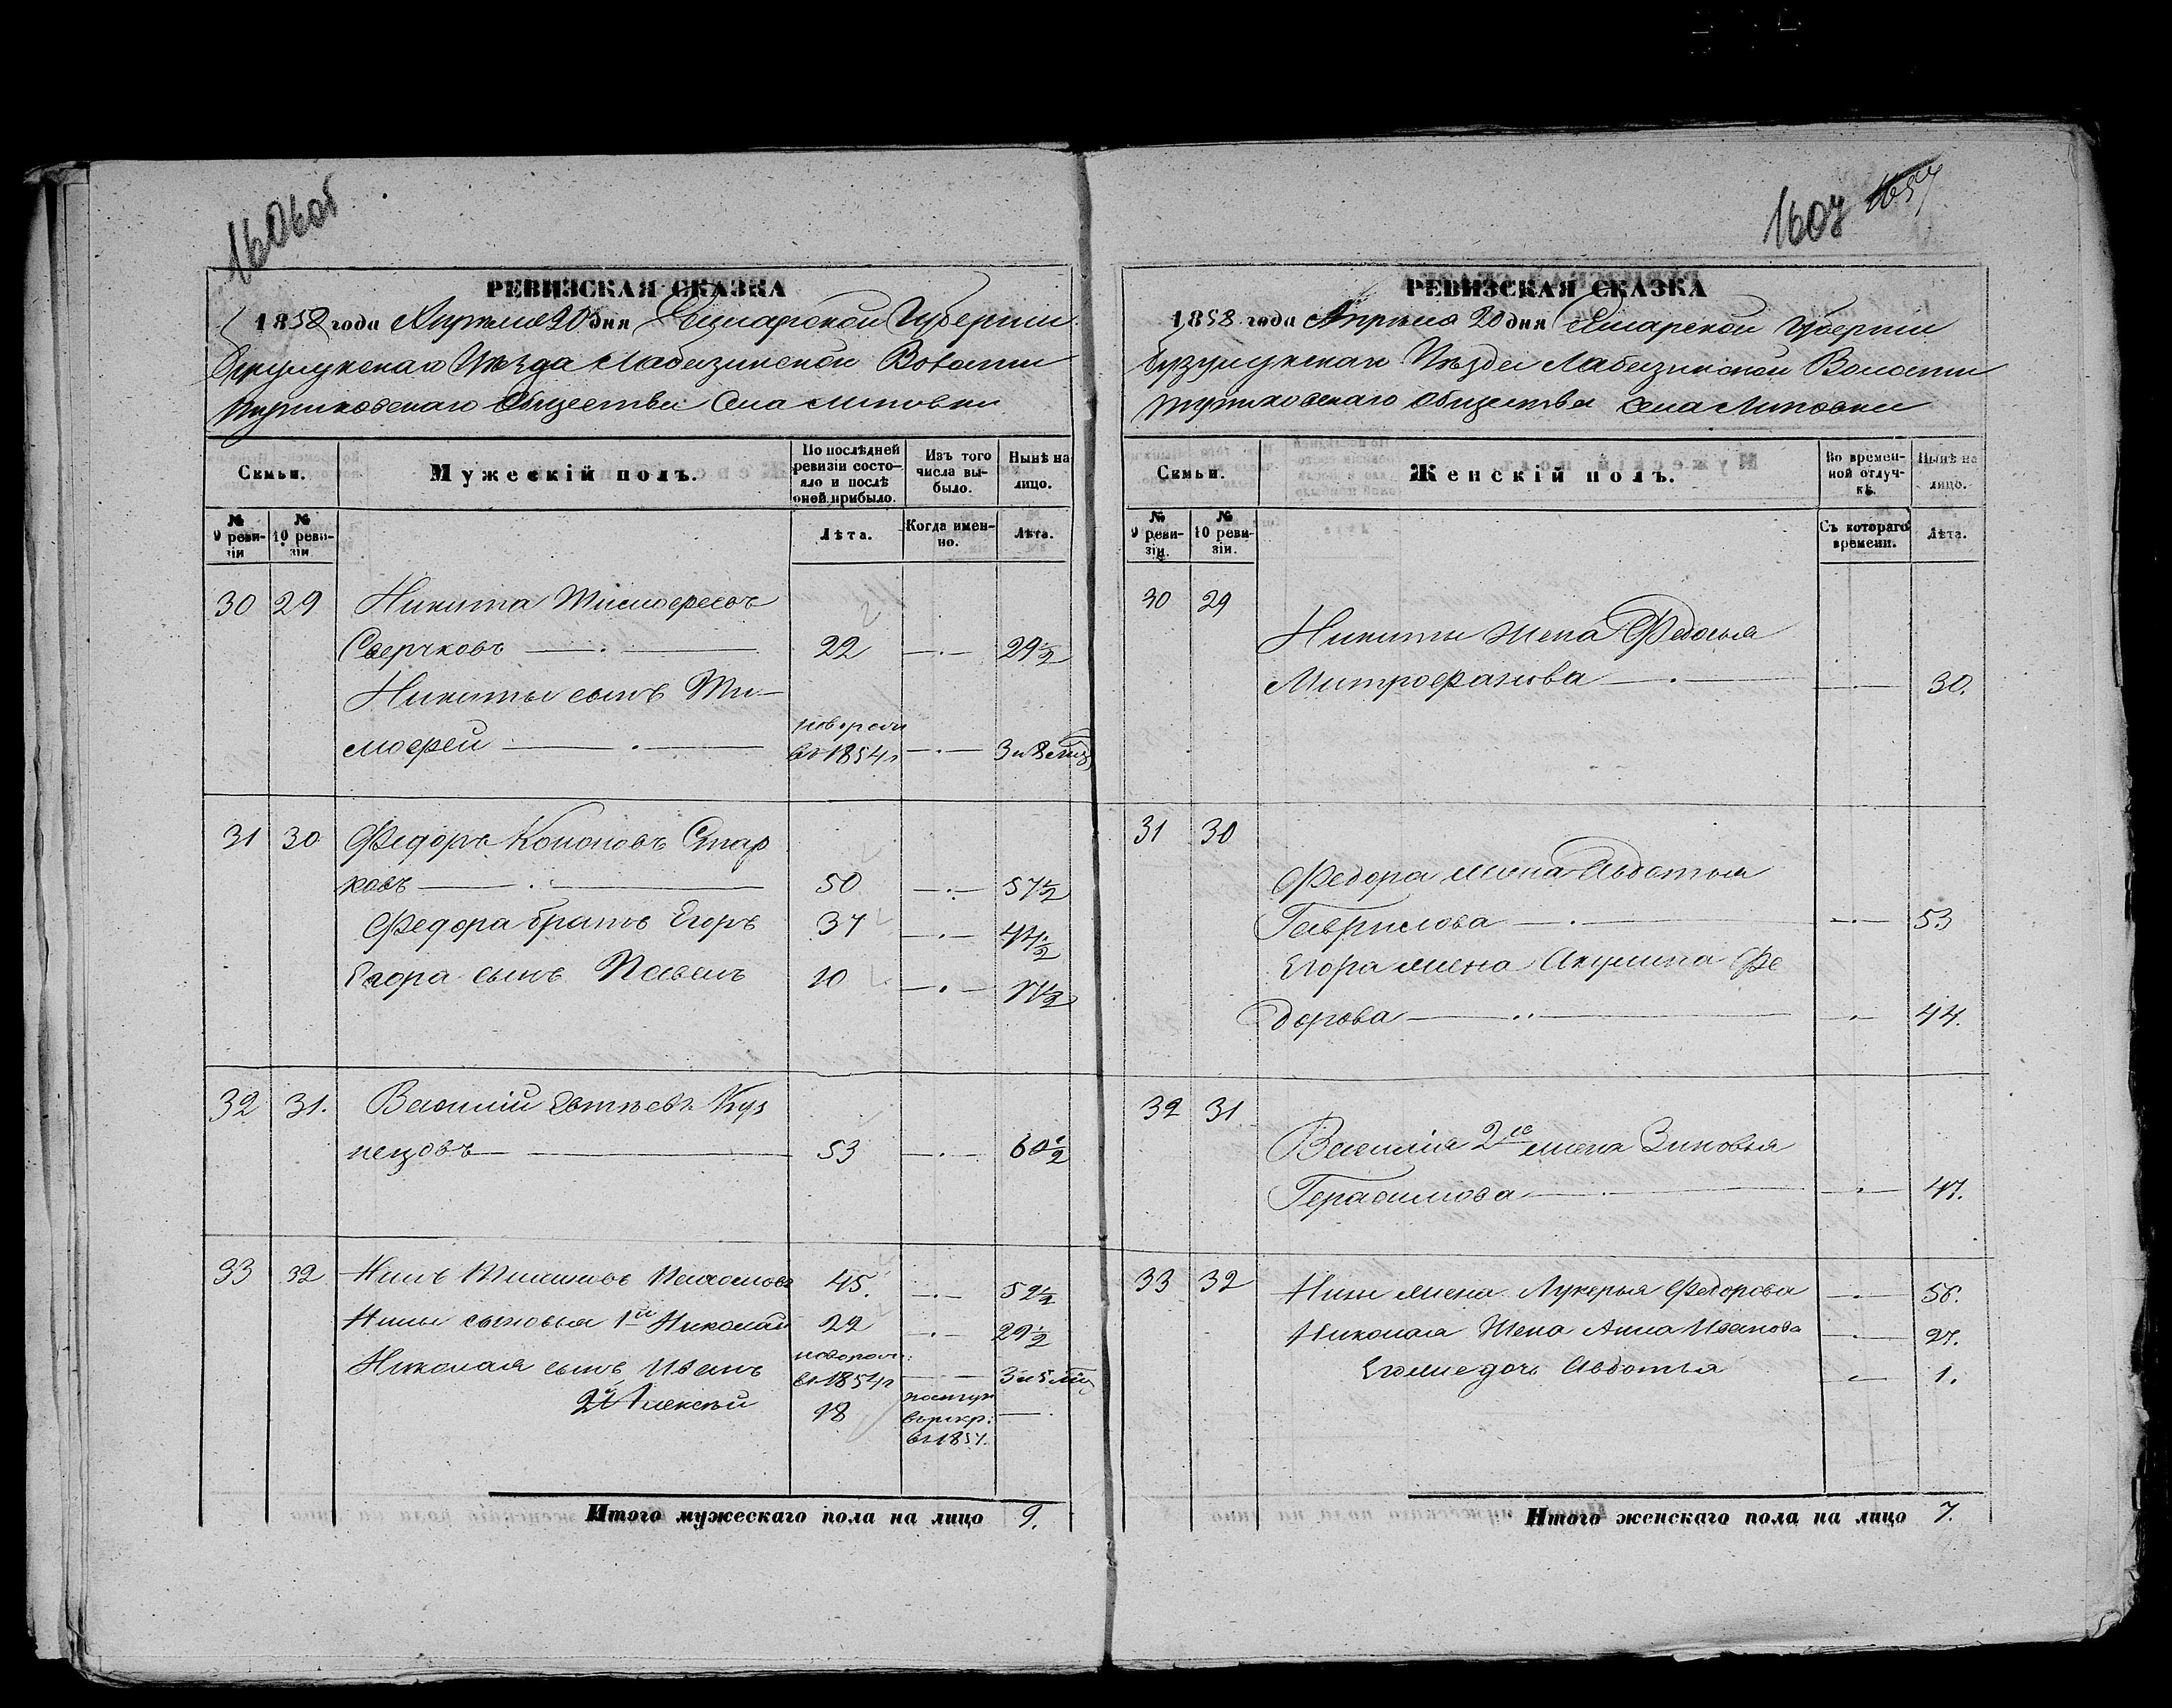 1606об
РЕВИЗСКАЯ СКАЗКА
1858 года Апреля 20 дня Самарской Губернии
Бузулукскаго Уезда Лабазинской Волости
Общества Села Липовки
Семьи.
Мужескій полъ.
По послѣдней ревизіи состояло и послѣ оной прибыло.
Изъ того числа выбыло.
Нынѣ на лицо.
№ 9 ревизіи
№ 10 ревизіи
Лѣта.
Когда именно.
Лѣта.
30 29 Никита Тимофеевъ
Сверчковъ 22 29½
Никиты сынъ Ти-
мофей новорож въ 1854г 3 и 8 мц
31 30 Федоръ Кононовъ Стар
ковъ 50 57½
Федора братъ Егоръ 37 44½
Егора сынъ Павелъ 10 17½
32 31. Василий Куз
нецовъ 53 60½
33 32 Нилъ 45. 52½
Нила сыновья 1й Николай 22 29½
Николая сынъ Иванъ новорож: въ 1854г 3 и 5 мц
2й Алексей 18 поступ врекр: въ 1857.
Итого мужескаго пола на лицо 9.
1607 1657
РЕВИЗСКАЯ СКАЗКА
1858 года Апреля 20 дня Самарской Губернии
Бузулукскаго Уезда Лабазинской Волости
Общества села Липовки
Семьи.
Женскій полъ.
Во временной отлучкѣ.
Нынѣ на лицо.
№ 9 ревизіи.
№ 10 ревизіи.
Съ котораго времени.
Лѣта.
30 29
Никиты жена Федосья
Митрофанова 30.
31 30
Федора жена Авдотья
Гаврилова 53
Егора жена Акулина Фе
дорова 44.
32 31
Василія 2ая жена Зиновья
Герасимова 47.
33 32 Нила жена Лукерья Федорова 56.
Николая Жена Анна Иванова 27.
дочь Авдотья 1.
Итого женскаго пола на лицо 7.